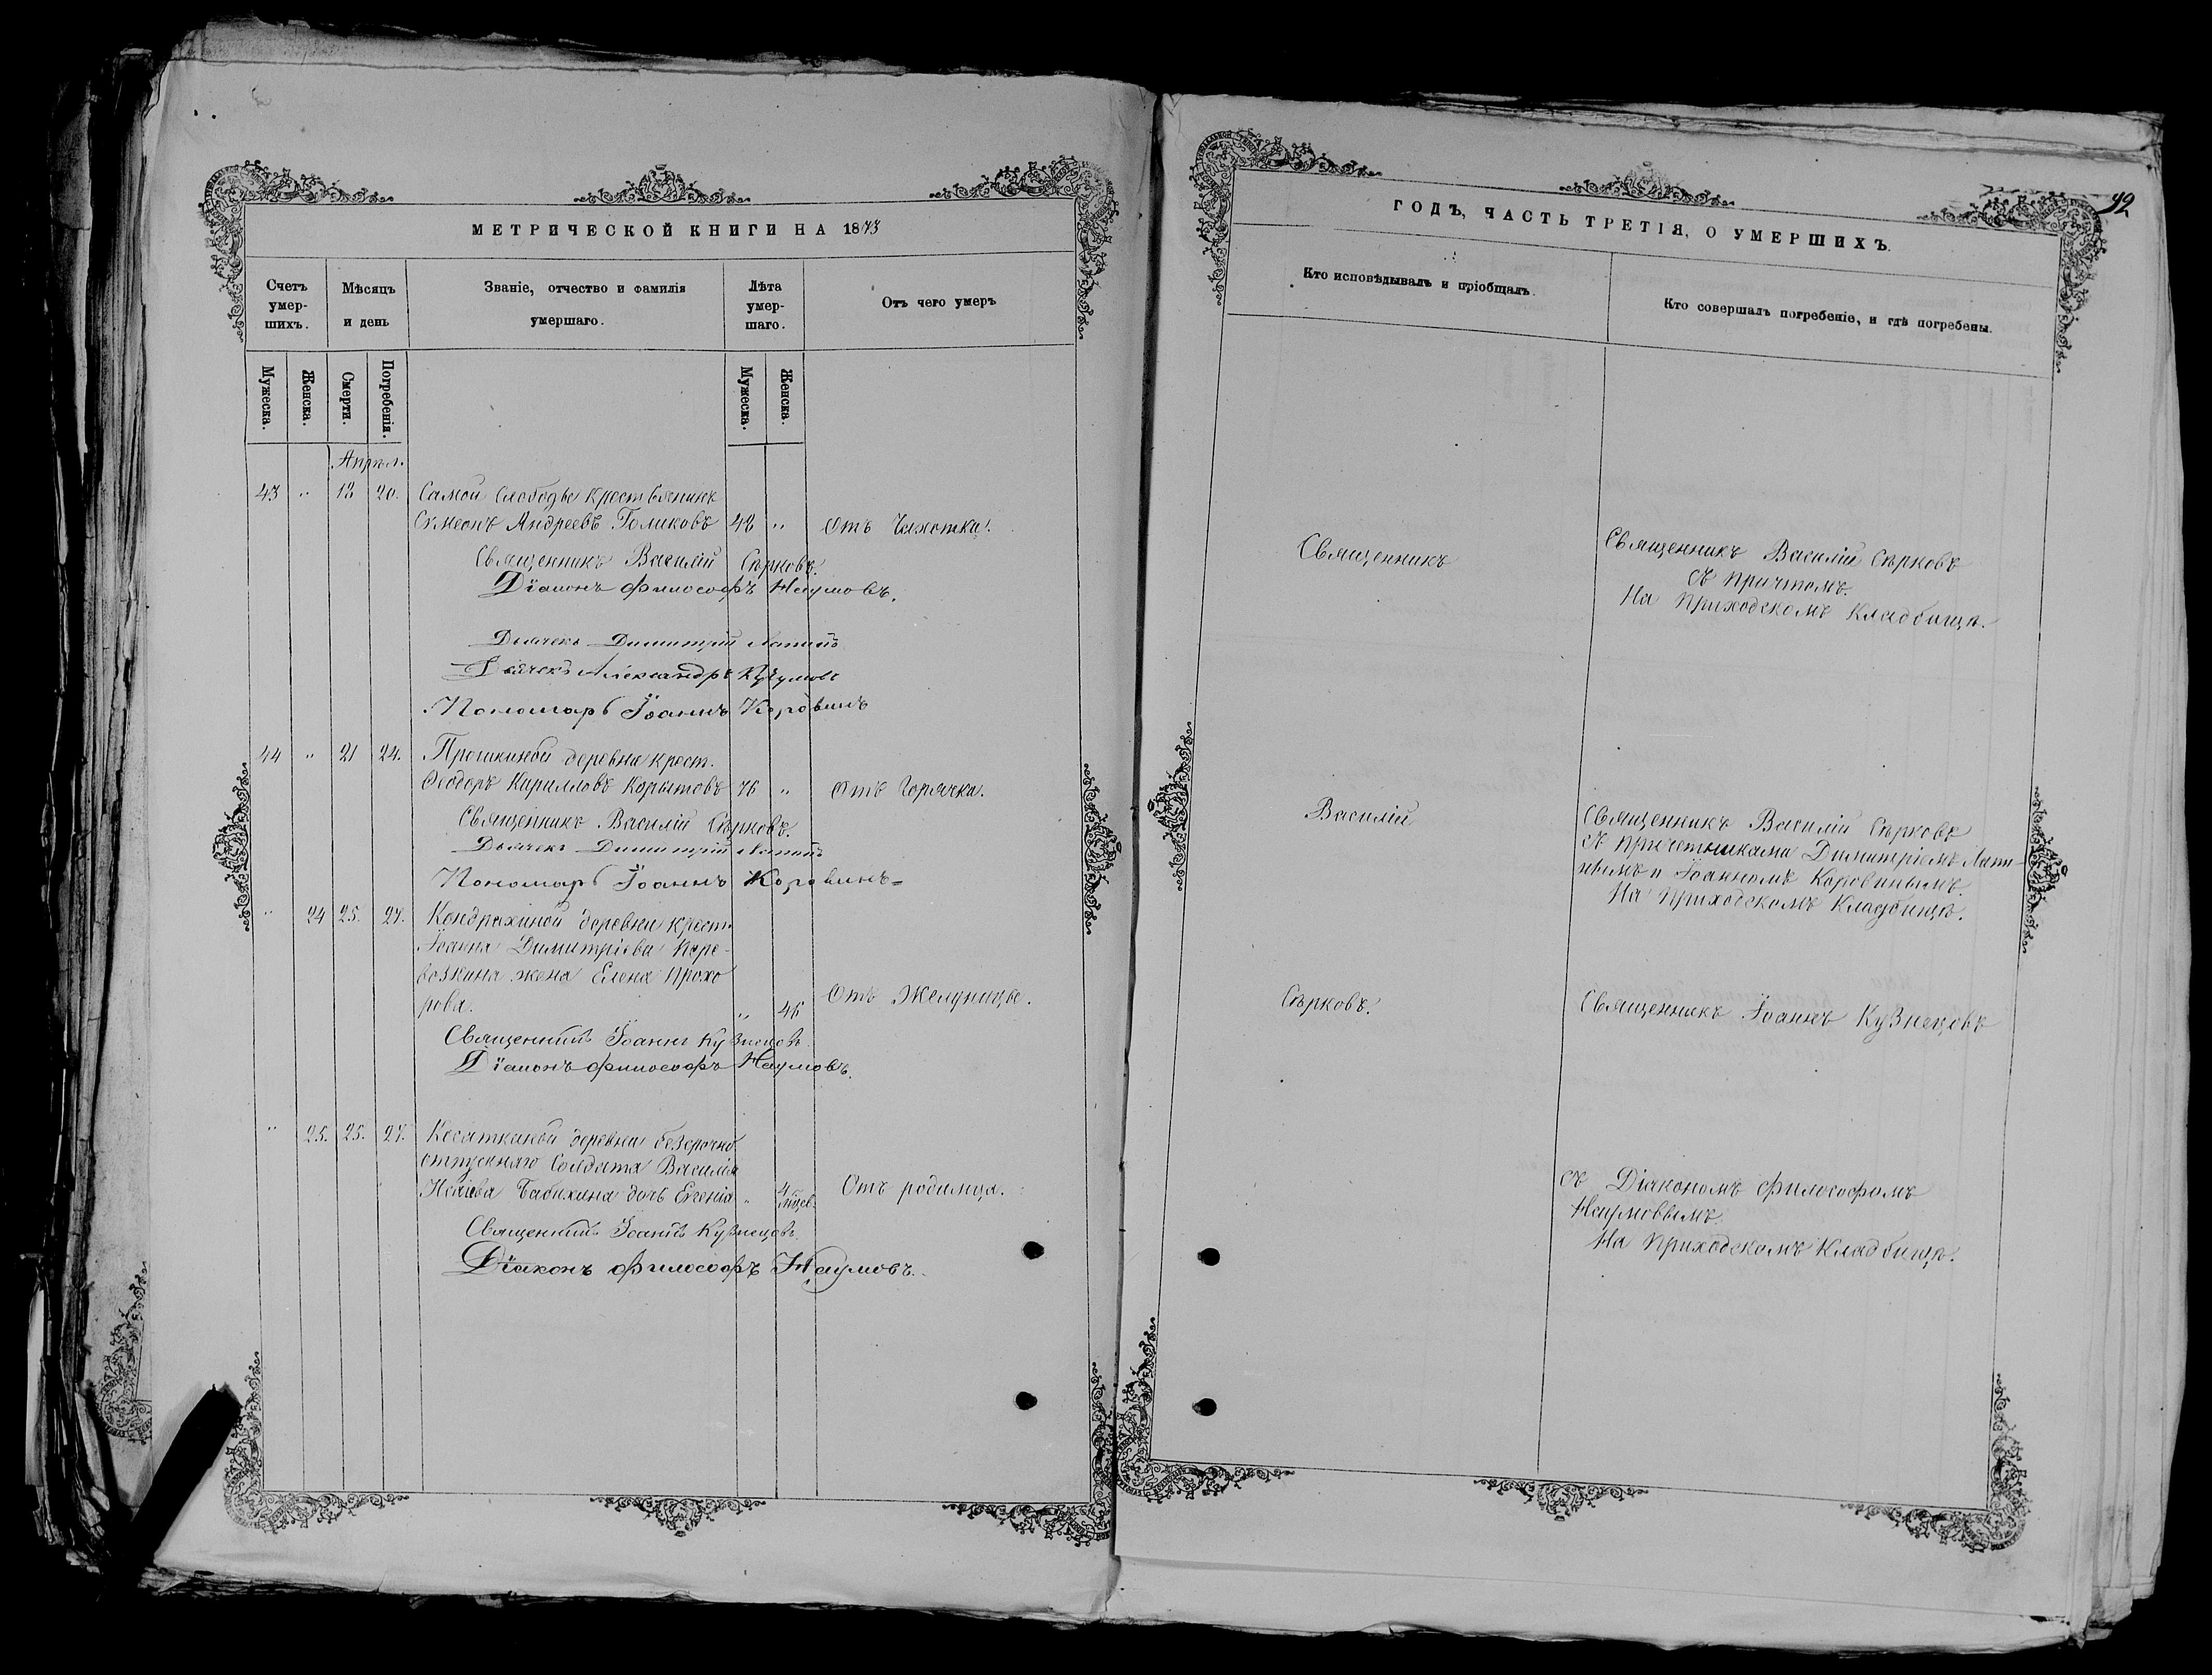 МЕТРИЧЕСКОЙ КНИГИ НА 1873
Счетъ умер-шихъ.
Мѣсяцъ и день
Званіе, отчество и фамилія умершаго.
Лѣта умер-шаго.
Отъ чего умеръ
Мужеска.
Женска.
Смерти.
Погребенія.
Мужеска.
Женска.
Апрѣл.
43 " 18 20. Самой Слободы крестьянинъ
Симеонъ Андреевъ Голиковъ 48 " Отъ Чахотки.
Священникъ Василій Сѣрковъ.
Діаконъ Философъ Наумовъ.
Дьячекъ Димитрій Лапинъ
Дьячекъ Александръ
Пономарь Іоаннъ Коровинъ
44 " 21 24. деревни крест.
Ѳеодоръ Кирилловъ Корытовъ 76 " Отъ Горячки.
Священникъ Василій Сѣрковъ.
Дьячекъ Димитрій Лапинъ
Пономарь Іоаннъ Коровинъ
" 24 25. 27. Кондрахиной деревни крест.
Іоанна Димитріева Пере-
возкина жена Елена Прохо
рова. " 46 Отъ Желуницы.
Священникъ Іоаннъ Кузнецовъ
Діаконъ Философъ Наумовъ.
" 25. 25. 27. Косаткиной деревни безсрочно
отпускнаго Солдата Василія
Исаіева Бабихина дочь Евгенія " 4 мѣсяц. Отъ родимца.
Священникъ Іоаннъ Кузнецовъ.
Діаконъ Философъ Наумовъ.
92
ГОДЪ, ЧАСТЬ ТРЕТІЯ, О УМЕРШИХЪ.
Кто исповѣдывалъ и пріобщалъ.
Кто совершалъ погребеніе, и гдѣ погребены.
Священникъ
Священникъ Василій Сѣрковъ
съ причтомъ.
На Приходскомъ Кладбищѣ.
Василій
Священникъ Василій Сѣрковъ
съ причетниками Димитріемъ Лапи-
нымъ и Іоанномъ Коровинымъ.
На Приходскомъ Кладбищѣ.
Сѣрковъ.
Священникъ Іоаннъ Кузнецовъ
съ Діакономъ Философомъ
Наумовымъ.
На Приходскомъ Кладбищѣ.